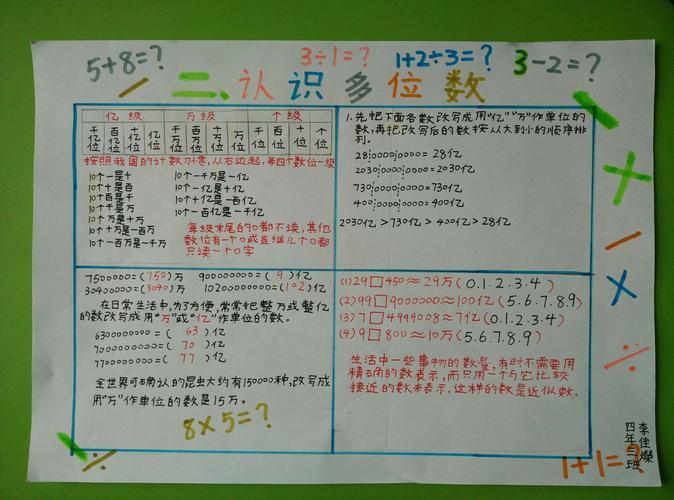 5+8=?
3÷1=?
1+2÷3=?
3-2=?
二、认识多位数
亿级 万级 个级
千亿位 百亿位 十亿位 亿位 千万位 百万位 十万位 万位 千位 百位 十位 个位
按照我国的计数习惯,从右边起,每四个数位一级
10个一是十 10个一千万是一亿
10个十是百 10个一亿是十亿
10个百是千 10个十亿是一百亿
10个千是万 10个一百亿是一千亿
10个万是十万
10个十万是一百万
10个一百万是一千万
每级末尾的0都不读,其他
数位有一个0或连继几个0都
只读一个0字
1.先把下面各数改写成用“亿”“万”作单位的
数,再把改写后的数按从大到小的顺序排
列。
28¦0000¦0000=28亿
2030¦0000¦0000=2030亿
730¦0000¦0000=730亿
400¦0000¦0000=400亿
2030亿>730亿>400亿>28亿
7500000=(750)万 900000000=(9)亿
30400000=(3040)万 10200000000=(102)亿
在日常生活中,为了方便,常常把整万或整亿
的数改写成用“万”或“亿”作单位的数。
6300000000=( 63 )亿
7000000000=( 70 )亿
7700000000=( 77 )亿
全世界可确认的昆虫大约有150000种,改写成
用“万”作单位的数是15万。
8×5=?
(1)29□450≈29万(0.1.2.3.4)
(2)99□9000000≈100亿(5.6.7.8.9)
(3)7□4999008≈7亿(0.1.2.3.4)
(4)9□800≈10万(5.6.7.8.9)
生活中一些事物的数量,有时不需要用
精确的数表示,而只用一个与它比较
接近的数来表示,这样的数是近似数。
四年二班
李佳燦
1+1=?